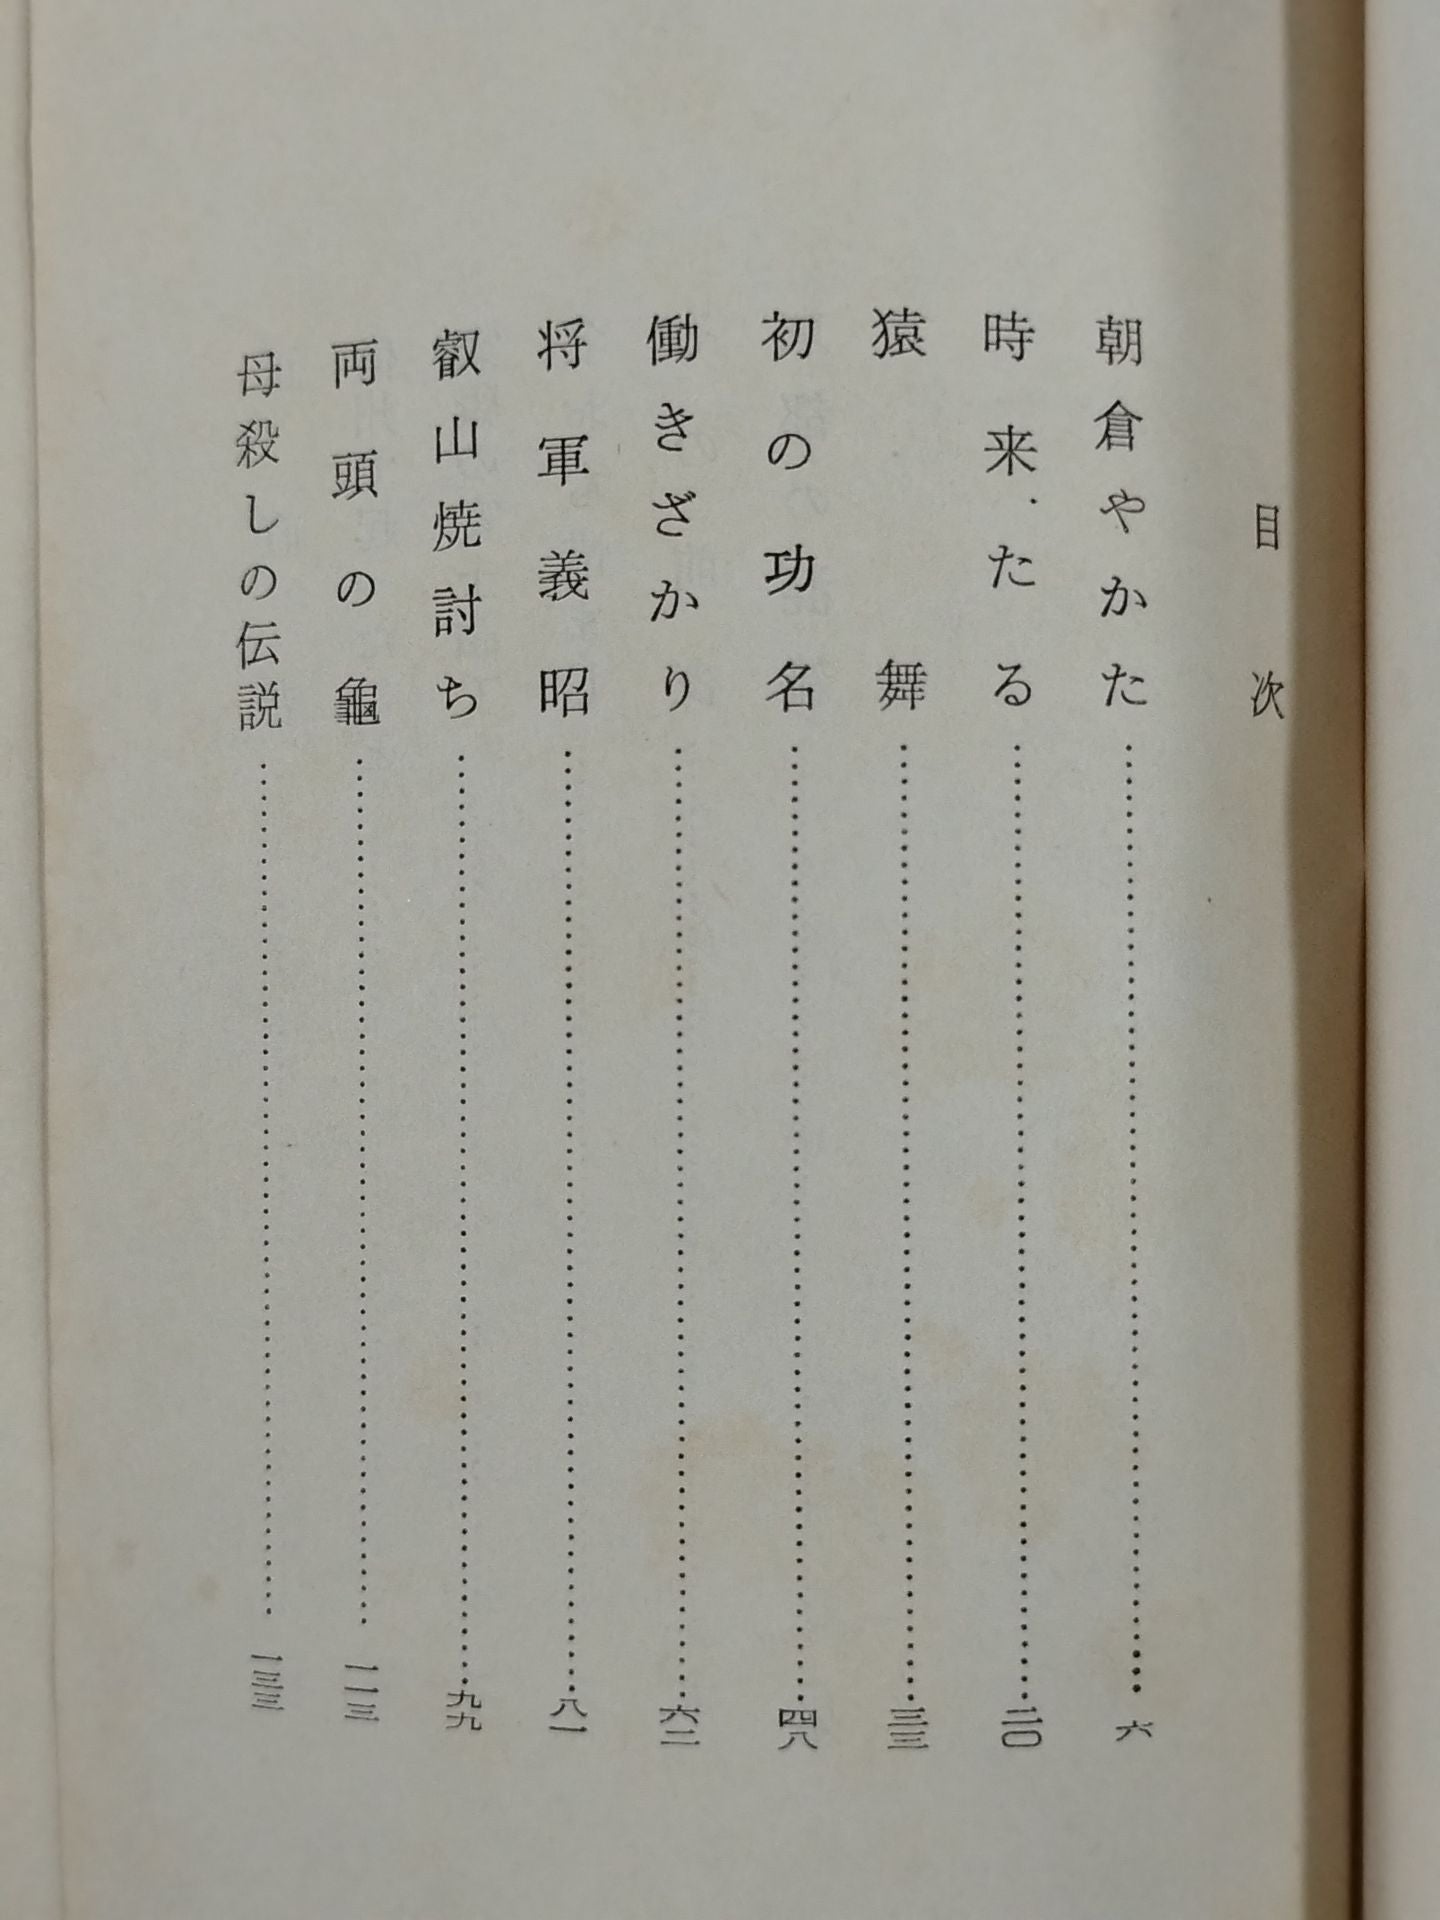 目次
朝倉やかた…………六
時来たる…………二〇
猿舞…………三三
初の功名…………四八
働きざかり…………六二
将軍義昭…………八一
叡山焼討ち…………九九
両頭の龜…………一一三
母殺しの伝説…………一三三